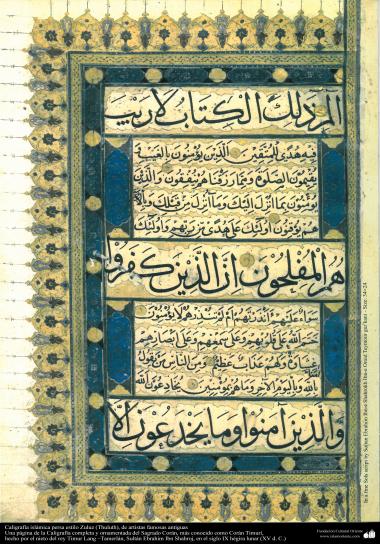 الم ذلك الكتاب لا ريب
فيه هدى للمتقين الذين يؤمنون بالغيب و
يقيمون الصلوة ومما رزقناهم ينفقون والذين
يؤمنون بما انزل اليك وما انزل من قبلك وبالآخرة
هم يوقنون اولئك على هدى من ربهم واولئك
هم المفلحون ان الذين كفروا
سواء عليهم ءانذرتهم ام لم تنذرهم لا يؤمنون
ختم الله على قلوبهم وعلى سمعهم وعلى ابصارهم
غشاوة ولهم عذاب عظيم ومن الناس من يقول آمنا
بالله وباليوم الآخر وما هم بمؤمنين يخادعون الله
والذين آمنوا وما يخدعون الا
Caligrafía islámica persa estilo Zuluz (Thuluth), de artistas famosas antiguas
Una página de la Caligrafía completa y ornamentada del Sagrado Corán, más conocido como Corán Timuri,
hecho por el nieto del rey Timur Lang –Tamerlán, Sultán Ebrahim Ibn Shahroj, en el siglo IX hégira lunar (XV d. C.)
Fundación Cultural Oriente